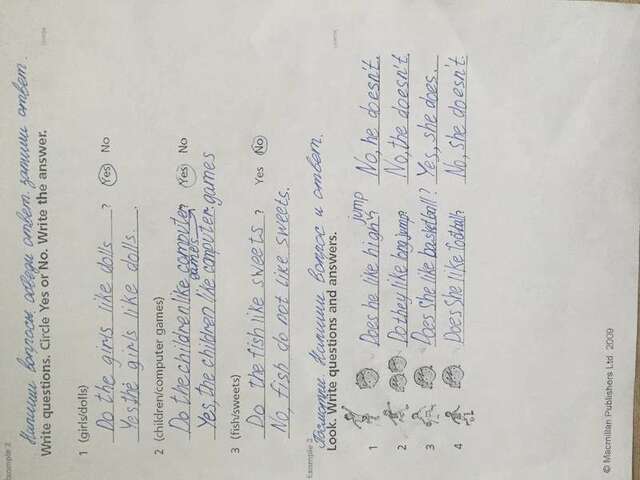 Example 2
Напиши вопросы, обведи ответ, запиши ответ.
Write questions. Circle Yes or No. Write the answer.
1 (girls/dolls)
Do the girls like dolls ? Yes No
Yes the girls like dolls.
2 (children/computer games)
Do the children like computer games? Yes No
Yes, the children like computer games
3 (fish/sweets)
Do the fish like sweets ? Yes No
No, fish do not like sweets.
Example 3
Посмотри. Напиши вопрос и ответ.
Look. Write questions and answers.
1 Does he like high jump No, he doesn't.
2 Do they like jump? No, the doesn't.
3 Does she like basketball? Yes, she does.
4 Does she like football? No, she doesn't
© Macmillan Publishers Ltd 2009